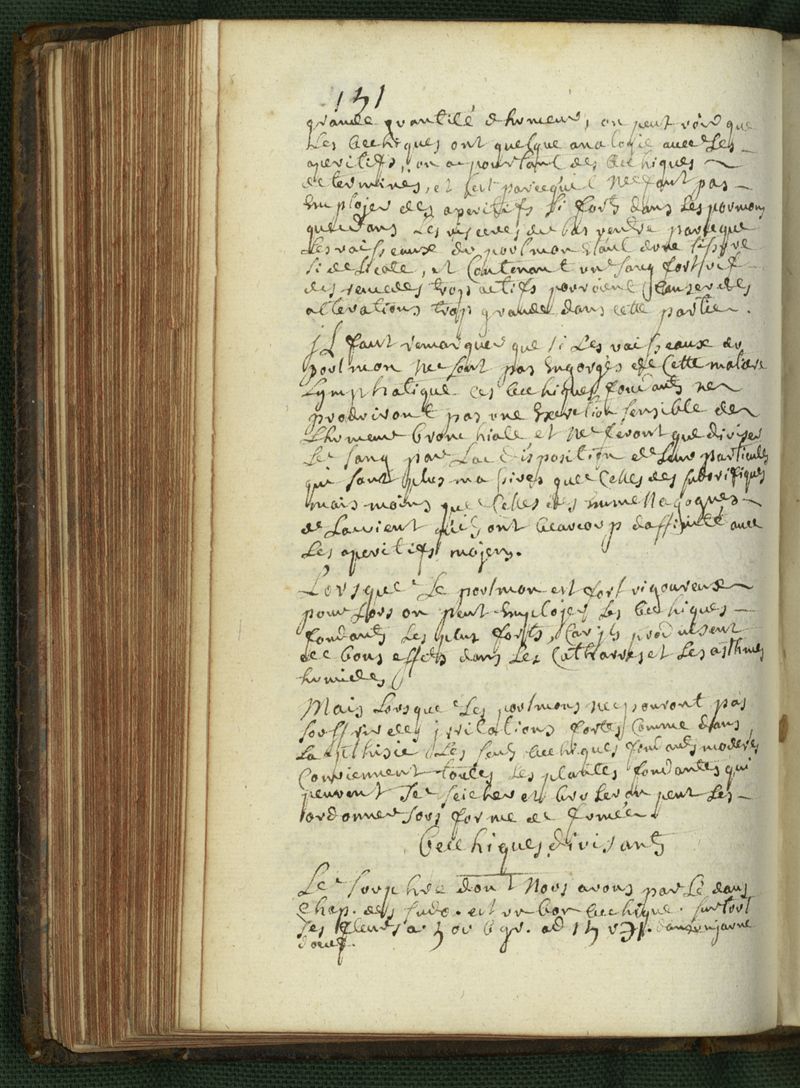 131
grande quantité dhumeur, on peut voir que
Les becchiques ont quelque analogie avec Les
aperitifs, on a pourtant des becchiques
determinés, et cest parcequil Ne faut pas
Employer des aperitifs si forts dans Les poumons
que dans Les visceres du bas ventre parceque
Les vaisseaux du poulmon étant dune
si delicate, et Contenant un sang fort vif
des remedes trop actifs pouroient Causer des
alterations trop grande dans cette partie.
jL faut remarquer que si Les vaisseaux du
poulmon Ne sont pas Engorgés de Cette matiere
Lymphatique ces becchiques fondants ne
produiront pas une Excretion sensible de
Lhumeur bronchiale et Ne feront que diviser
Le sang par La disposition de Leur particules
qui sont plus massives que Celles des sudorifiques
mais moins que Celles des Emmenagogues
de La vient quils ont beaucoup daffinité avec
Les aperitifs moyens.
Lorsque Le poulmon est fort vigoureux
pour Lors on peut Employer Les becchiques
fondants Les plus forts, Car ils produisent
de bons effets dans Les Catharres et Les asthmes
humides
Mais Lorsque Les poulmons Ne pouront pas
souffrir des jrritations fortes Comme dans
La phtisie Les seuls becchiques fondants moderés
Conviennent toutes Les plantes fondantes qui
peuvent se seicher et bruler on peut Les
ordonner sous forme de fumée.
becchiques divisants
Le souphre dont Nous avons parlé dans
Chap. des sudo. est un bon becchique. surtout
ses fleurs a ou 6 gr. ad dans un jaune
doeuf.